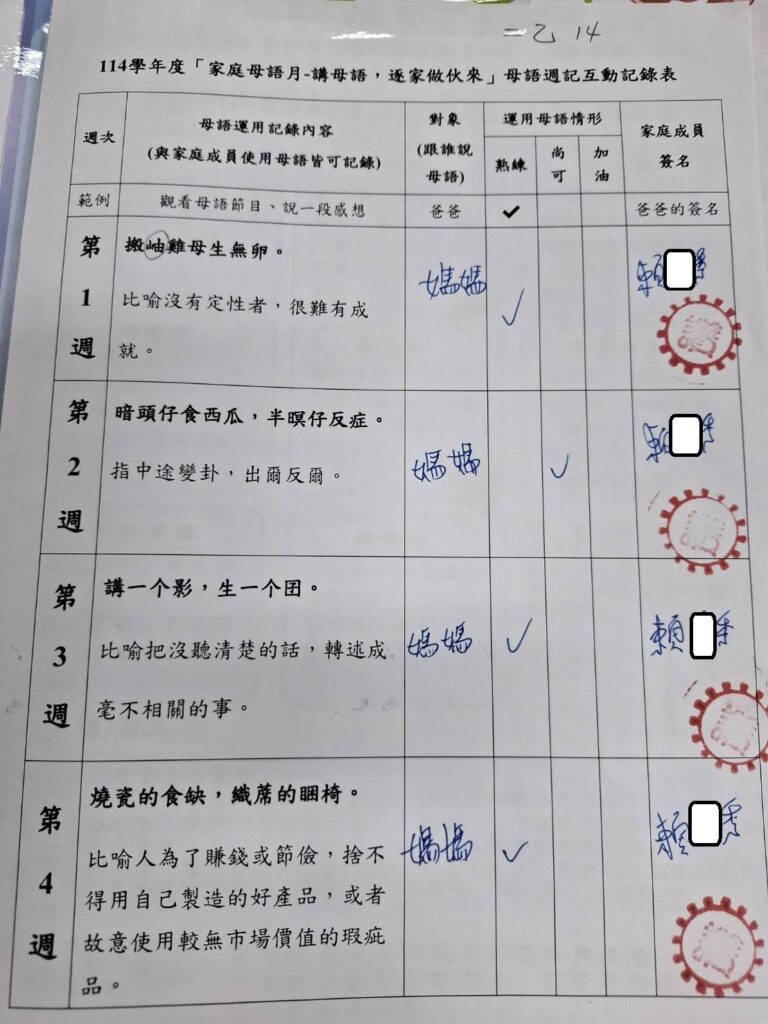 一乙 14
114學年度「家庭母語月-講母語，逐家做伙來」母語週記互動記錄表
週次
母語運用記錄內容
(與家庭成員使用母語皆可記錄)
對象
(跟誰說
母語)
運用母語情形
熟練
尚可
加油
家庭成員
簽名
範例 觀看母語節目、說一段感想 爸爸 ✔ 爸爸的簽名
第1週
搬岫雞母生無卵。
比喻沒有定性者，很難有成
就。
媽媽 ✓ 賴
第2週
暗頭仔食西瓜，半暝仔反症。
指中途變卦，出爾反爾。
媽媽 ✓ 賴
第3週
講一个影，生一个囝。
比喻把沒聽清楚的話，轉述成
毫不相關的事。
媽媽 ✓ 賴
第4週
燒瓷的食缺，織蓆的睏椅。
比喻人為了賺錢或節儉，捨不
得用自己製造的好產品，或者
故意使用較無市場價值的瑕疵
品。
媽媽 ✓ 賴